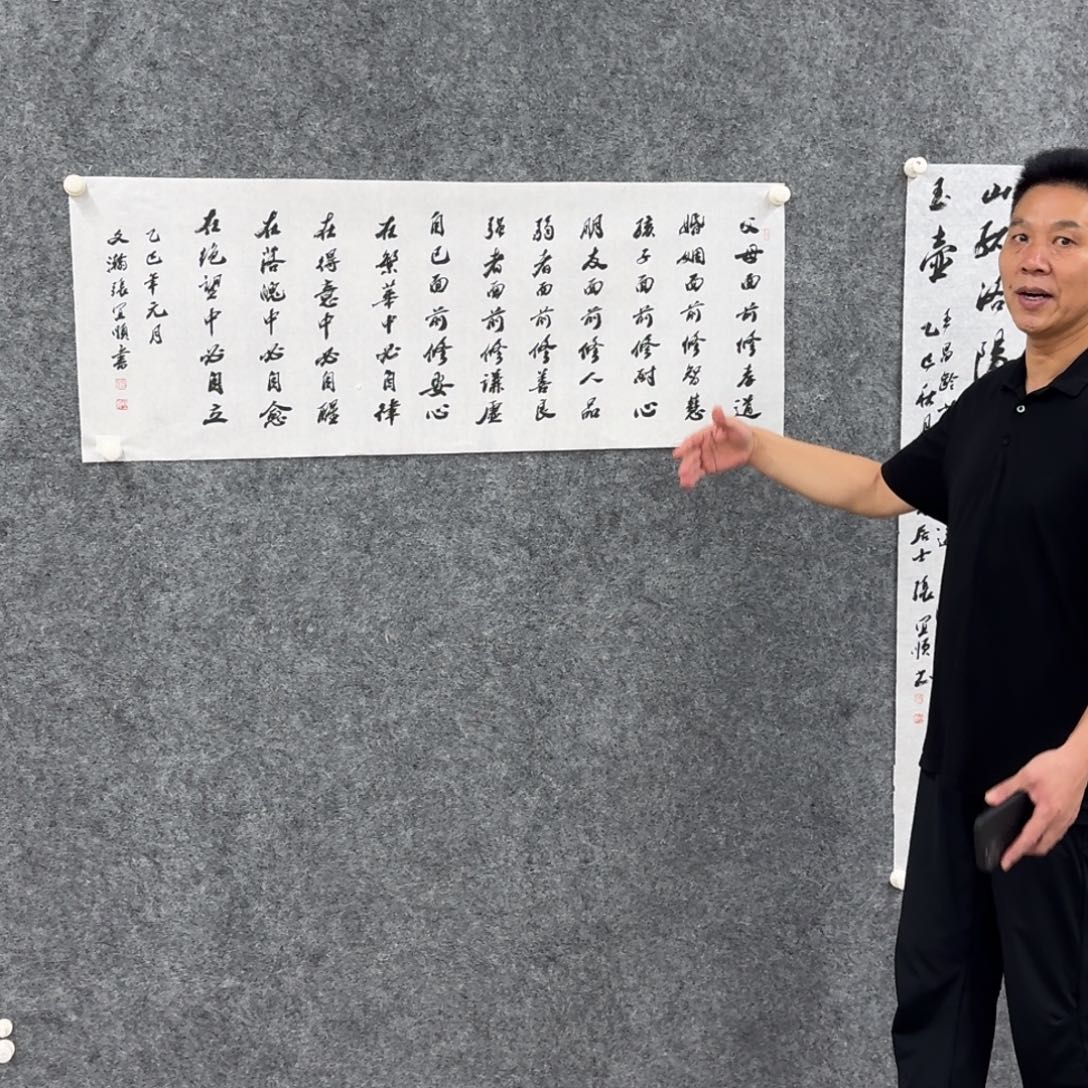 父母面前修孝道
婚姻面前修智慧
孩子面前修耐心
朋友面前修人品
弱者面前修善良
强者面前修谦虚
自己面前修安心
在繁華中必自律
在得意中必自醒
在落魄中必自愈
在绝望中必自立
乙巳年元月
文瀚張宜順書
山
洛陽
玉壺
王昌齡
乙巳秋月
居士張宜順書